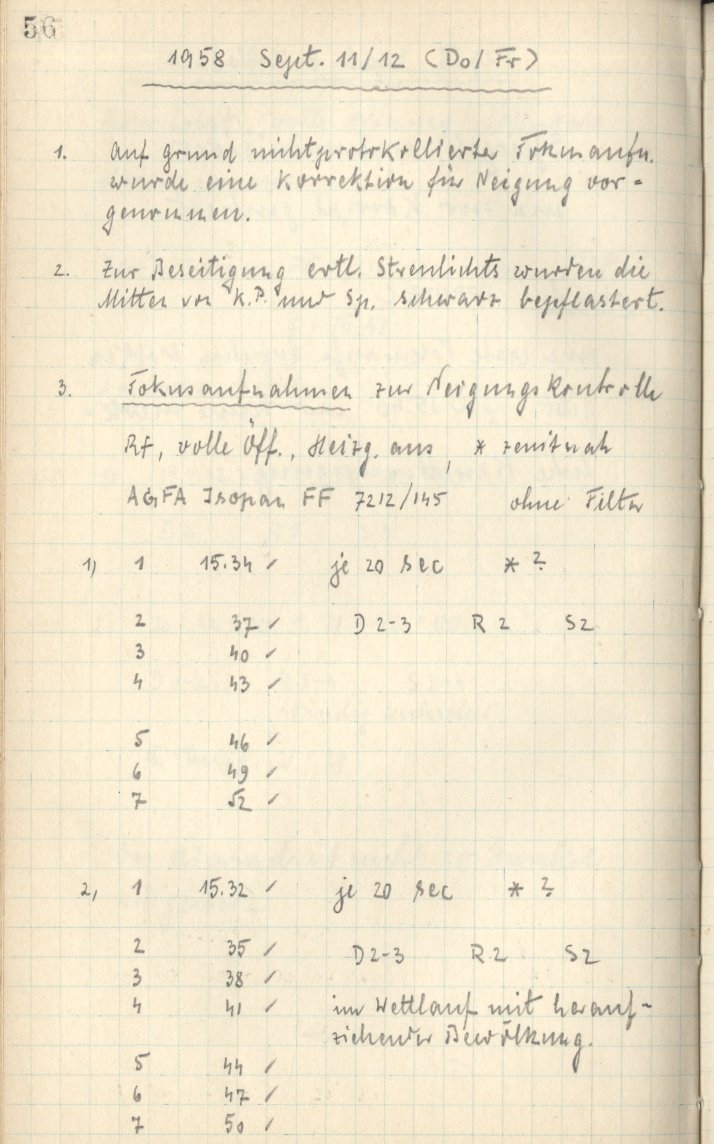 56
1958 Sept. 11/12 (Do/Fr)
1. Auf grund nichtprotokollierter Fokusaufn.
wurde eine Korrektion für Neigung vor=
genommen.
2. Zur Beseitigung evtl. Streulichts wurden die
Mitten von K.P. und Sp. schwarz bepflastert.
3. Fokusaufnahmen zur Neigungskontrolle
RF, volle Öff., Heizg. aus, * zenitnah
AGFA Isopan FF 7212/145 ohne Filter
1) 1 15.34 ✓ je 20 sec * ?
2 37 ✓ D 2-3 R 2 S2
3 40 ✓
4 43 ✓
5 46 ✓
6 49 ✓
7 52 ✓
2) 1 15.32 ✓ je 20 sec * ?
2 35 ✓ D 2-3 R 2 S2
3 38 ✓
4 41 ✓ im Wettlauf mit herauf-
ziehender Bewölkung.
5 44 ✓
6 47 ✓
7 50 ✓